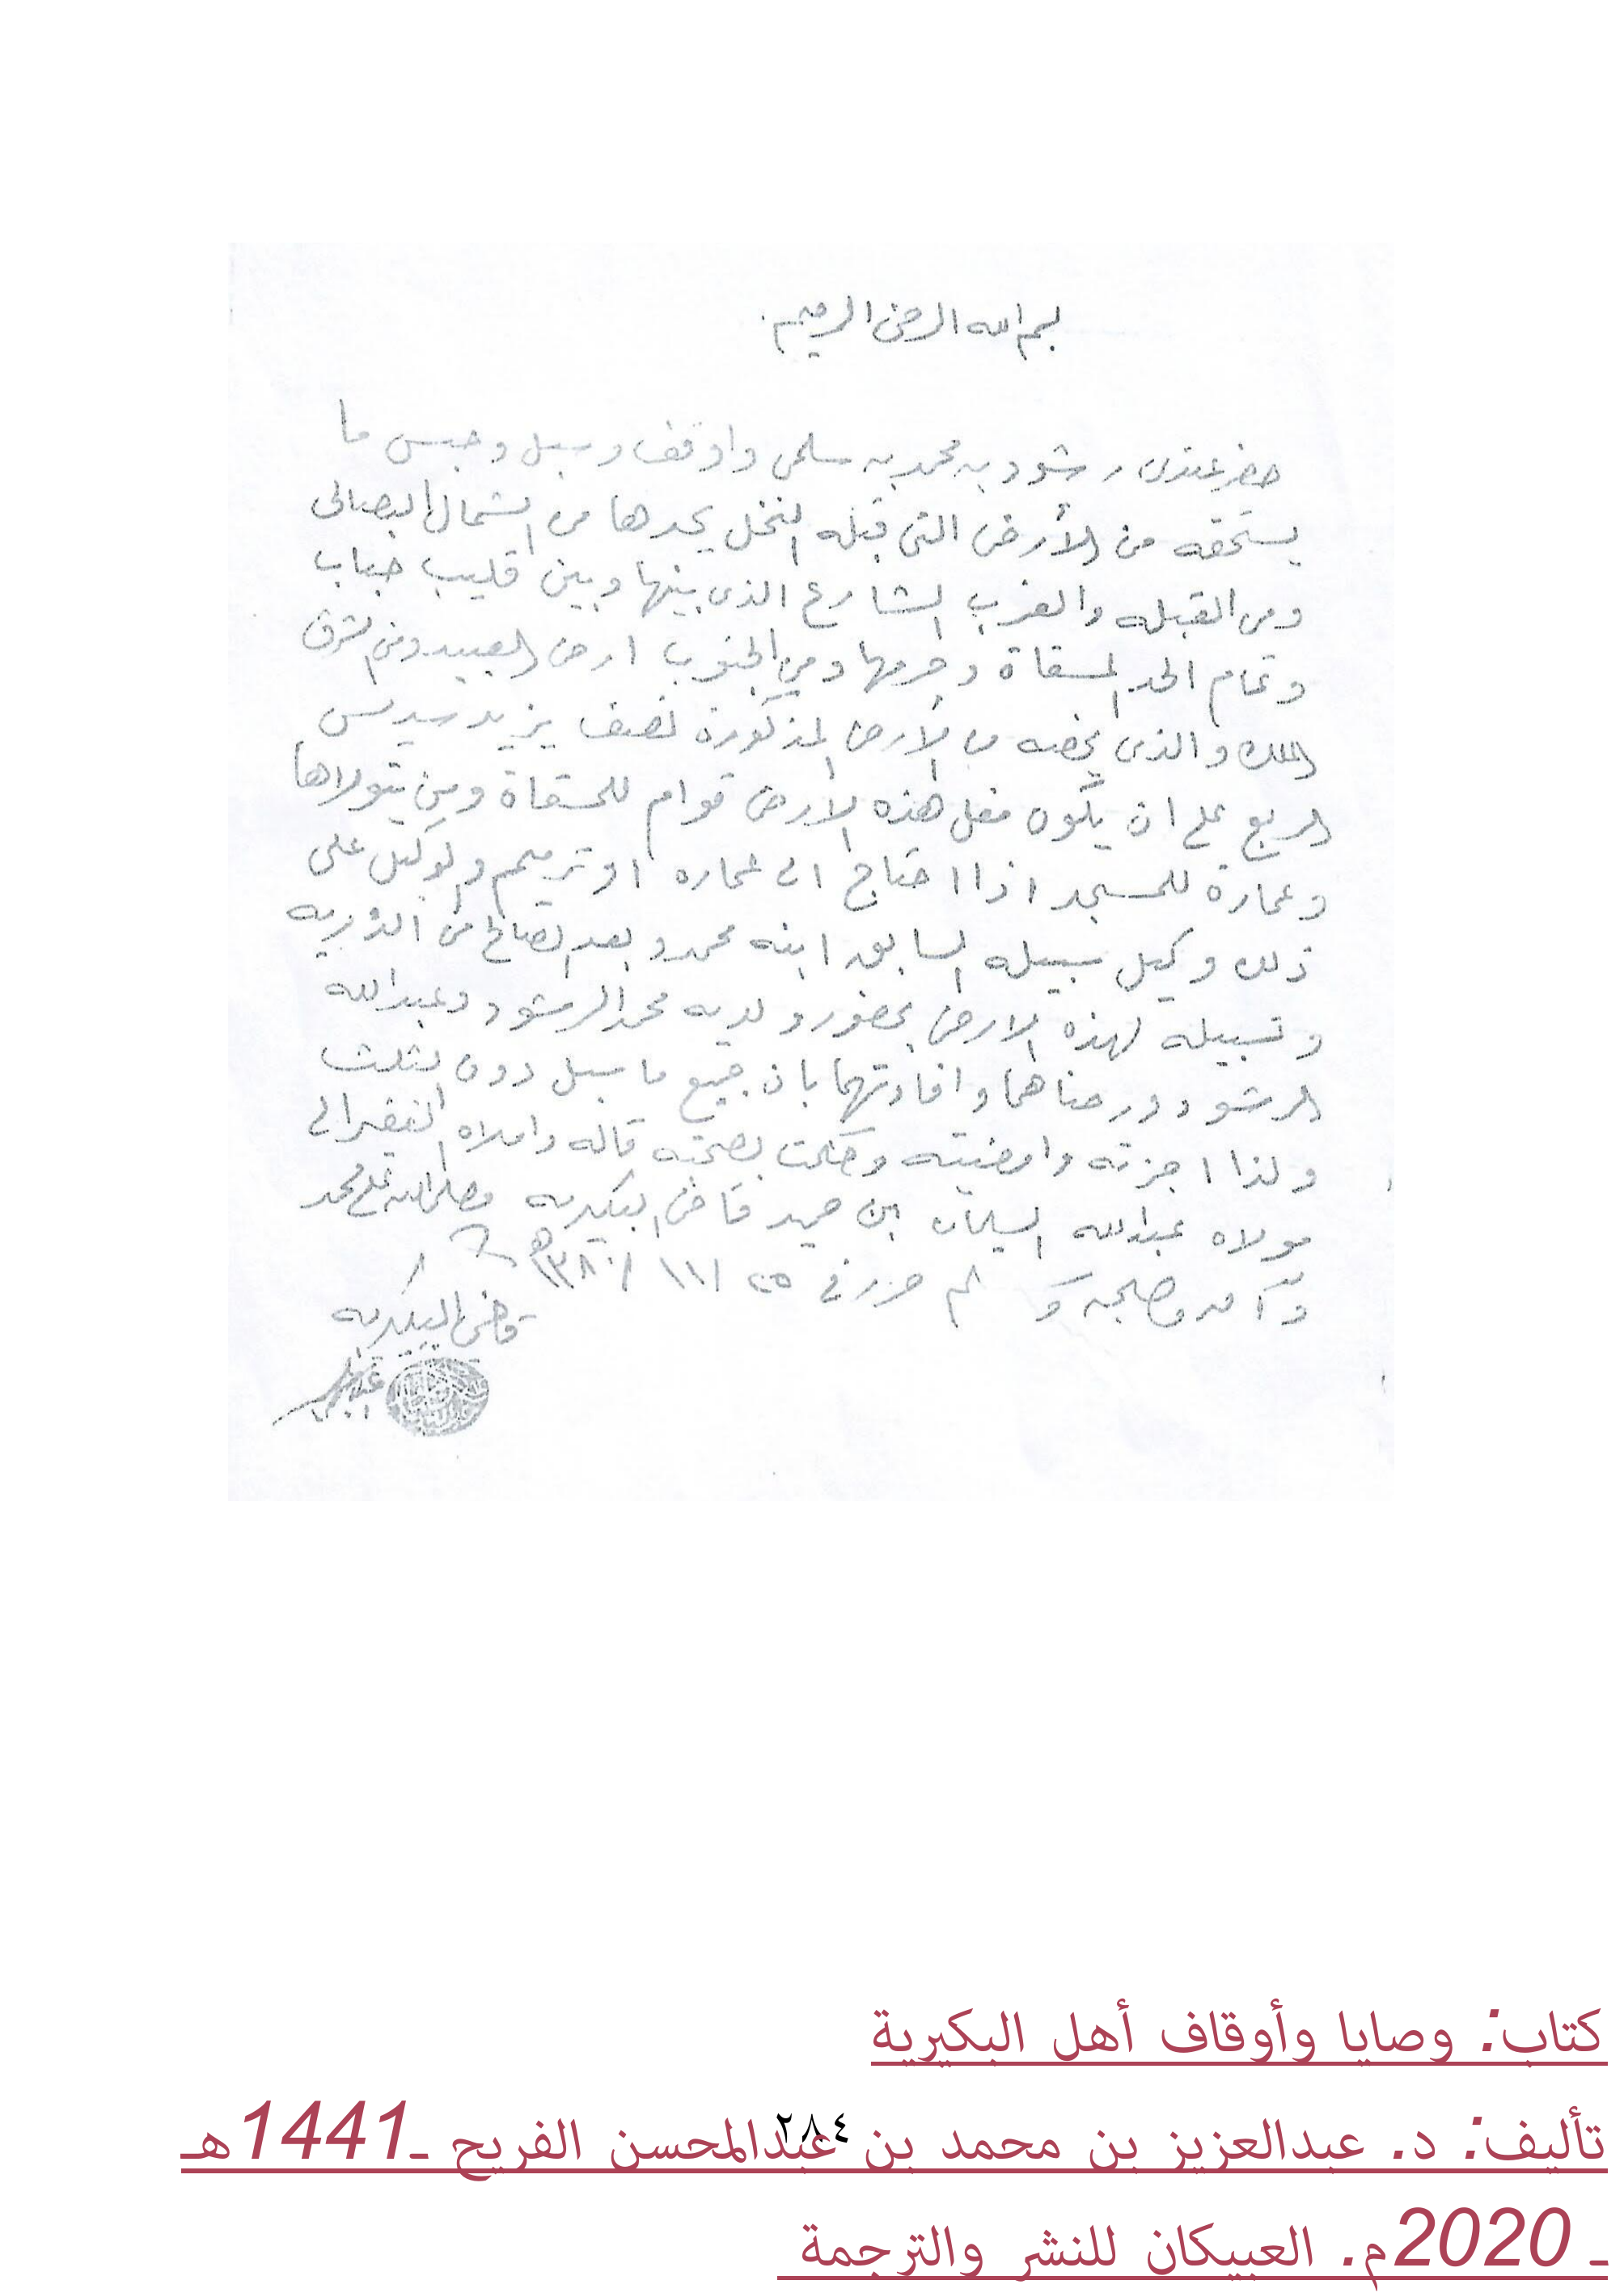 بسم الله الرحمن الرحيم
حضر عندي رشود بن محمد بن سلمى واوقف وسبل وحبس ما
يستحقه من الأرض التي قبلة النخل يحدها من الشمال البصالى
ومن القبله والغرب الشارع الذي بينها وبين قليب حباب
وتمام الحد المسقاة وحرمها ومن الجنوب ارض العبيد ومن الشرق
الملك والذي يخصه من الأرض المذكورة نصف يزيد سديس
الربع على ان يكون مغل هذه الارض قوام للمسقاة ومن يتولاها
وعمارة للمسجد اذا احتاج الى عماره او ترميم والوكيل على
ذلك وكيل سبيله السابق ابنه محمد وبعد الصالح من الذريه
وتسبيله لهذه الارض بحضور ولديه محمد الرشود وعبدالله
الرشود ورضاهما وافادتهما بان جميع ما سبل دون الثلث
ولذا اجزته وامضيته وحكمت بصحته قاله واملاه الفقير الى
مولاه عبدالله السليمان ابن حميد قاضي البكيريه وصلى الله على محمد
وآله وصحبه وسلم حرر في ٢٥ /١١ /١٣٨٠هـ
قاضي البكيريه
كتاب: وصايا وأوقاف أهل البكيرية
تأليف: د. عبدالعزيز بن محمد بن عبدالمحسن الفريح ـ1441هـ
٢٨٤
ـ 2020م. العبيكان للنشر والترجمة